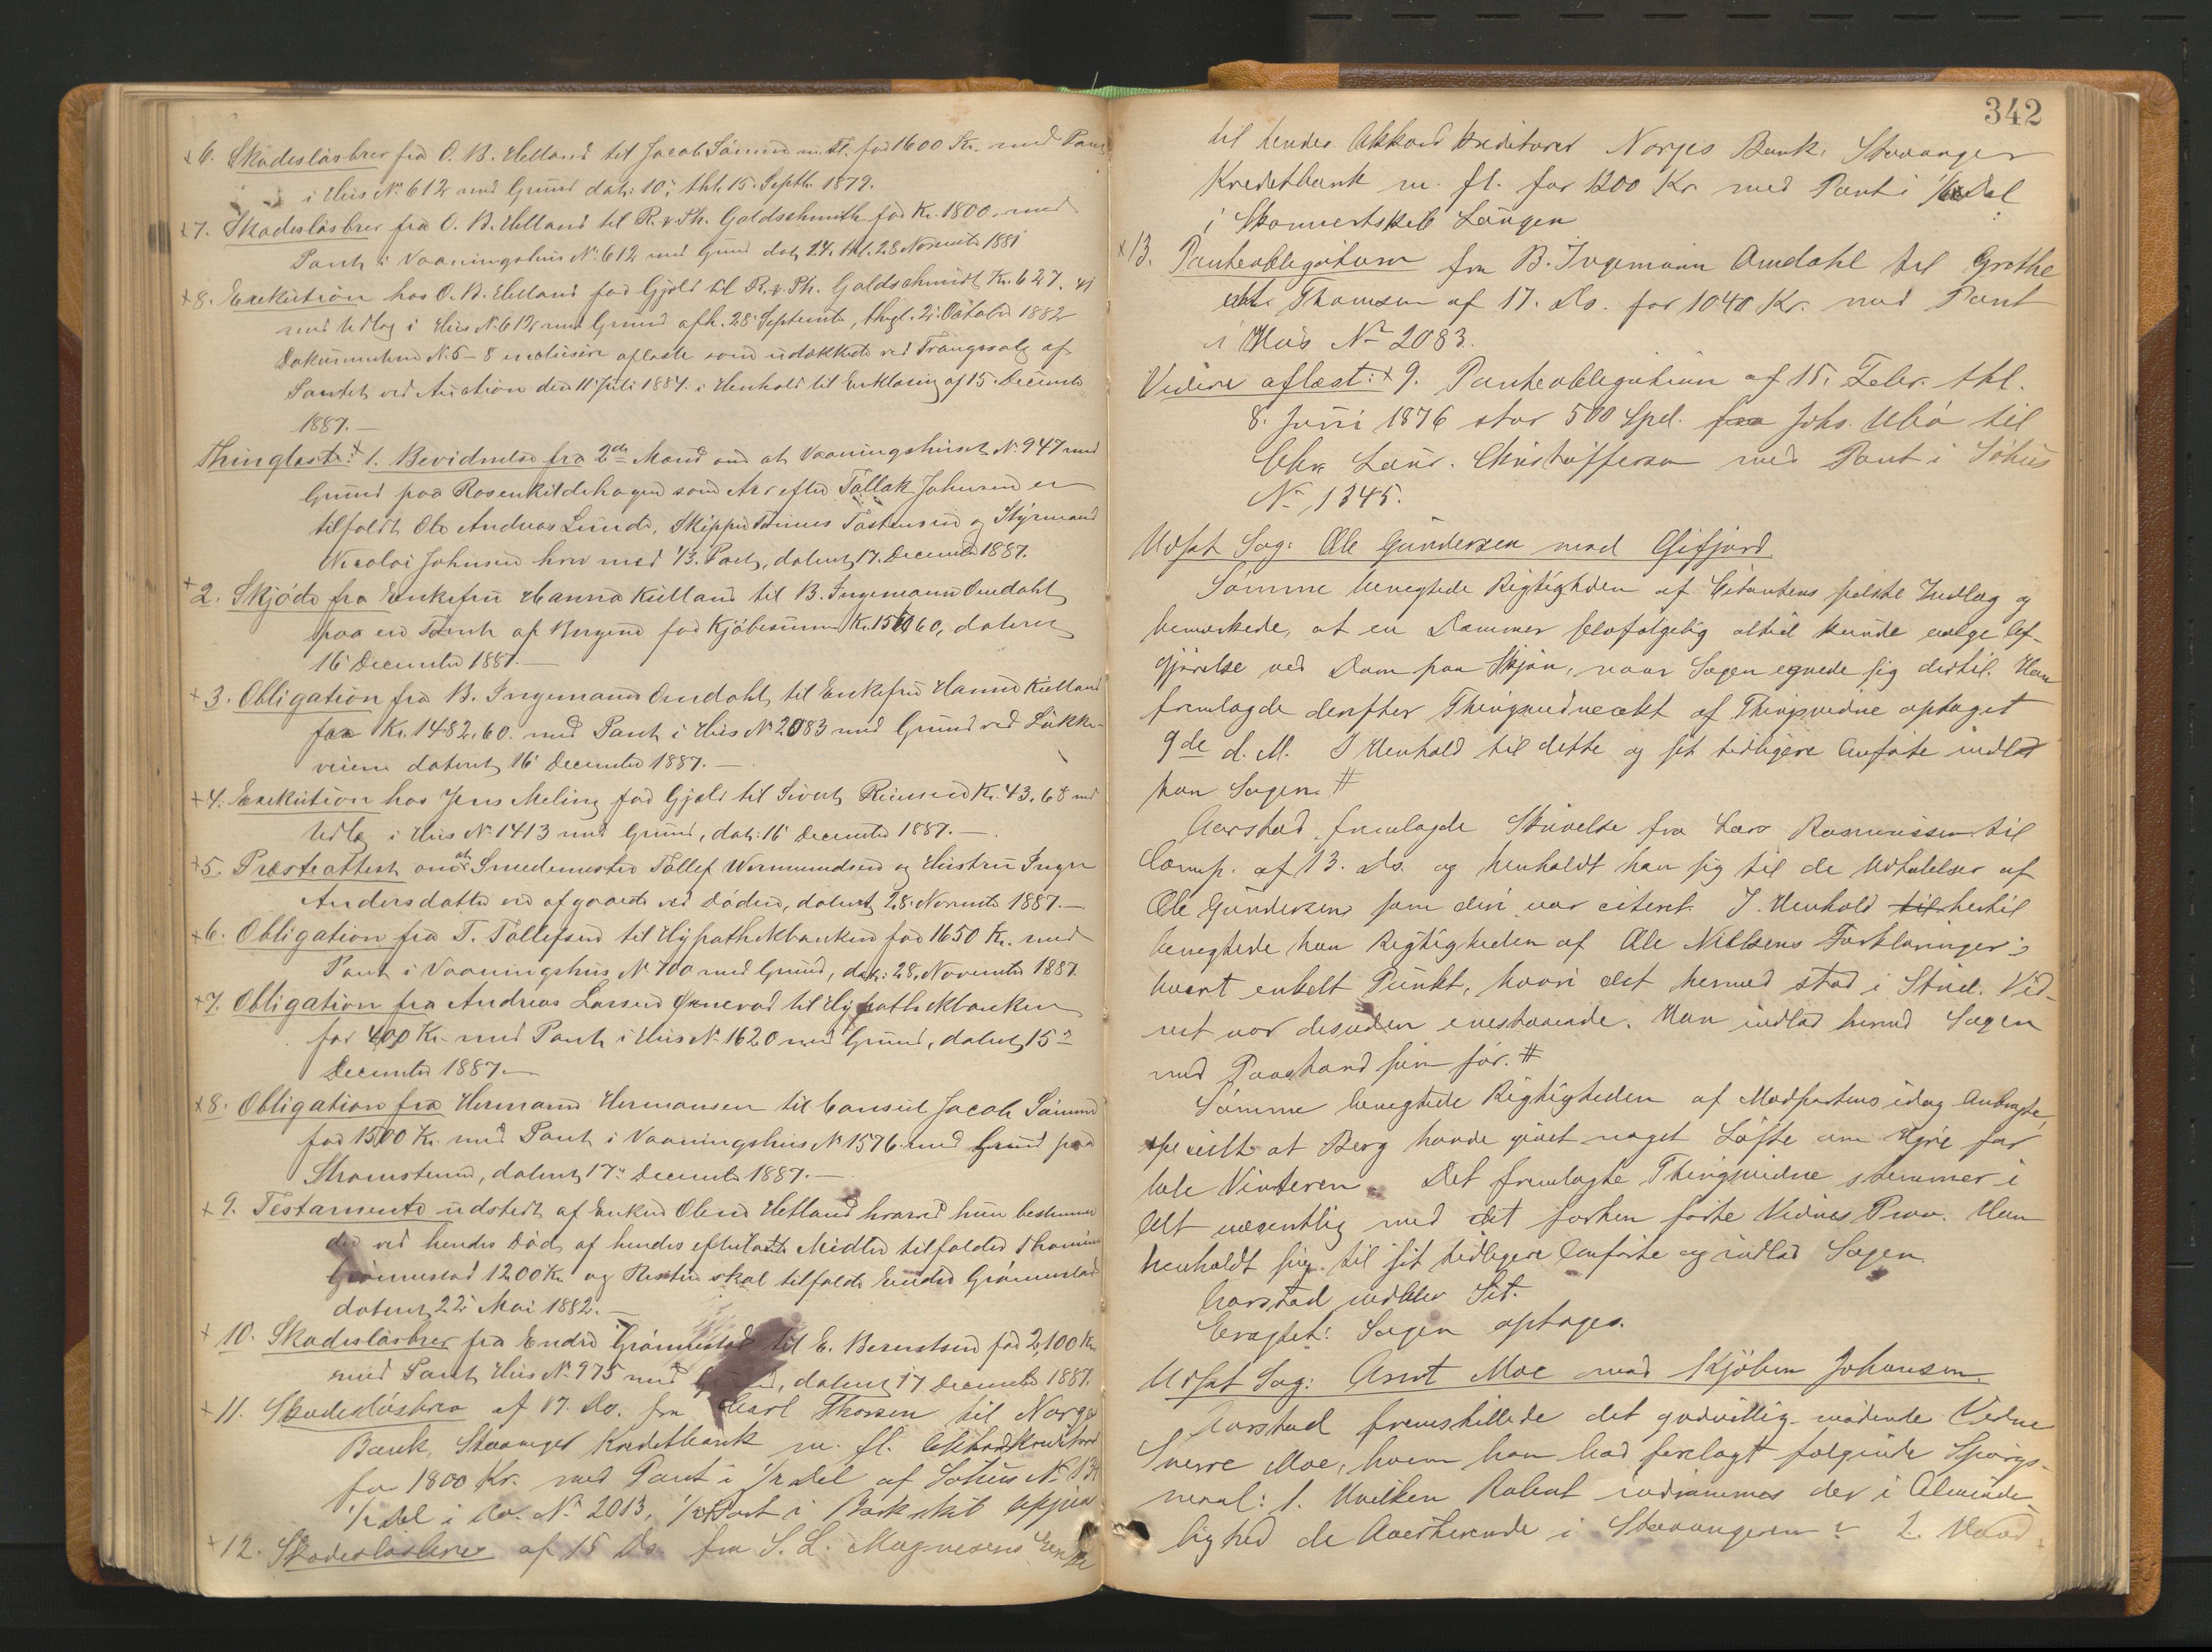 +6. Skadesløsbrev fra O. B. Helland til Jacob Sömme m. Fl. for 1600 Kr. med Pant
i Hus No 612 med Grund dat: 10, thl. 15. Septb. 1879.
+7. Skadesløsbrev fra O. B. Helland til R. & Ph. Goldschmith for Kr. 1800. med
Pant i Vaaningshus No 612 med Grund dat. 24. thl. 28 November 1881
+8. Exekution hos O. B. Helland for Gjæld til R. & Ph. Goldschmidt Kr. 627. 41
med Udlæg i Hus No 612 med Grund afh. 28 September, thgl. 2. October 1882
Dokumenterne No 5-8 inclusive aflæste som udækkede ved Tvangssalg af
Pantet ved Auction den 11 Juli 1884. i Henhold til Erklæring af 15 December
1887.—
Thinglæst: + 1. Bevidnelse fra 2de Mænd om at Vaaningshuset No 947 med
Grund paa Rosenkildehagen som Arv efter Tollak Johnsen er
tilfaldt Ole Andreas Lunde, Skipper Tönnes Tostensen og Styrmand
Nicolai Johnsen hver med 1/3. Part, dateret 17. December 1887.
+2. Skjöde fra Enkefru Hanna Kielland til B. Ingemann Omdahl
paa en Tomt af Bergene for Kjöbesum Kr. 1560, dateret
16 December 1887.—
+3. Obligation fra B. Ingemann Omdahl til Enkefru Hanna Kielland
for Kr. 1482,60. med Pant i Hus No 2083 med Grund ved Lökke-
veien dateret 16 December 1887.—
+4. Exekution hos Jens Meling for Gjæld til Sivert Reiersen Kr. 43,68 med
Udlæg i Hus No 1413 med Grund, dat: 16 December 1887.—
+5. Præsteattest om at Smedemester Tollef Wermundsen og Hustru Inger
Andersdatter er afgaaede ved Döden, dateret 28. November 1887.—
+6. Obligation fra T. Tollefsen til Hypothekbanken for 1650 Kr. med
Pant i Vaaningshus No 700 med Grund, dat: 28. November 1887
+7. Obligation fra Andreas Larsen til Hypothekbanken
for 400 Kr. med Pant i Hus No 1620 med Grund, dateret 15
December 1887.—
+8. Obligation fra Hermann Hermansen til Consul Jacob Sömme
for 1500 Kr. med Pant i Vaaningshus No 1576. med Grund paa
Strömsteen, dateret 17 December 1887.—
+9. Testamente udstedt af Enken Olene Helland hvorved hun bestemmer
der ved hendes Död af hendes efterladte Midler tilfalder
Grönnestad 1200 Kr. og Resten skal tilfalde Endre Grönnestad
dateret 22 Mai 1882.—
+10. Skadesløsbrev fra Endre Grönnestad til E. Berentsen for 2,100 Kr.
med Pant Hus No 975 med Grund, dateret 17 December 1887.
+11. Skadesløsbrev af 17. Ds. fra Carl Thorsen til Norges
Bank, Stavanger Kreditbank m. fl. Akkordkreditorer
for 1800 Kr. med Pant i 1/2 Del af Söhus No
1/2 Del i do. No 2013, Part i Barkskib
+12. Skadesløsbrev af 15 Ds. fra S. L. Magnesens Enke
342
til hendes Akkordkreditorer Norges Bank, Stavanger
Kreditbank m. fl. for 1200 Kr. med Pant i Del
i Skonnertskib Lüngen
+13. Panteobligation fra B. Ingemann Omdahl til Grethe
Thomsen af 17. Ds. for 1040 Kr. med Pant
i Hus No 2083.
Videre aflæst: + 9. Panteobligation af 15. Febr. thl.
8. Juni 1876 stor 500 Spd. fra Johs. Ubö til
Chr. Laur. Christoffersen med Pant i Söhus
No 1345.
Udsat Sag: Ole Gundersen mod Gifjord
Sömme benegtede Rigtigheden af Citantens sidste Indlæg og
bemærkede, at en Dommer selvfølgelig altid kunde vælge Af-
gjörelse ved Dom paa Skjön, naar Sagen egnede sig dertil. Han
fremlagde derefter Thingsvidneakt af Thingsvidne optaget
9de d. M. I Henhold til dette og sit tidligere Anförte indlod
han Sagen. #
Aarstad fremlagde Skrivelse fra Lars Rasmussen til
Comp. af 13. Ds. og henholdt han sig til de Udtalelser af
Ole Gundersen som deri var citeret. I Henhold til hertil
benegtede han Rigtigheden af Ole Nielsens Forklaringer i
hvert enkelt Punkt, hvori det hermed stod i Strid. Vid-
net var desuden enestaaende. Han indlod hermed Sagen
med Paastand som för. #
Sömme benegtede Rigtigheden af Modpartens idag Anbragte,
specielt at Berg havde givet noget Löfte om Hyre for
hele Vinteren. Det fremlagte Thingsvidne stemmer i
Alt væsentlig med det forhen förte Vidnes Prov. Han
henholdt sig til sit tidligere Anförte og indlod Sagen.
Aarstad indlod Sit.
Eragtet: Sagen optages.
Udsat Sag: Arnt Moe mod Kjölum Johansen.
Aarstad fremstillede det godvillig mödende Vidne
Sverre Moe, hvem han bad forelagt fölgende Spörgs-
maal: 1. Hvilken Rabat indrömmes der i Alminde-
lighed de Averterende i Stavangeren? 2. Hvad